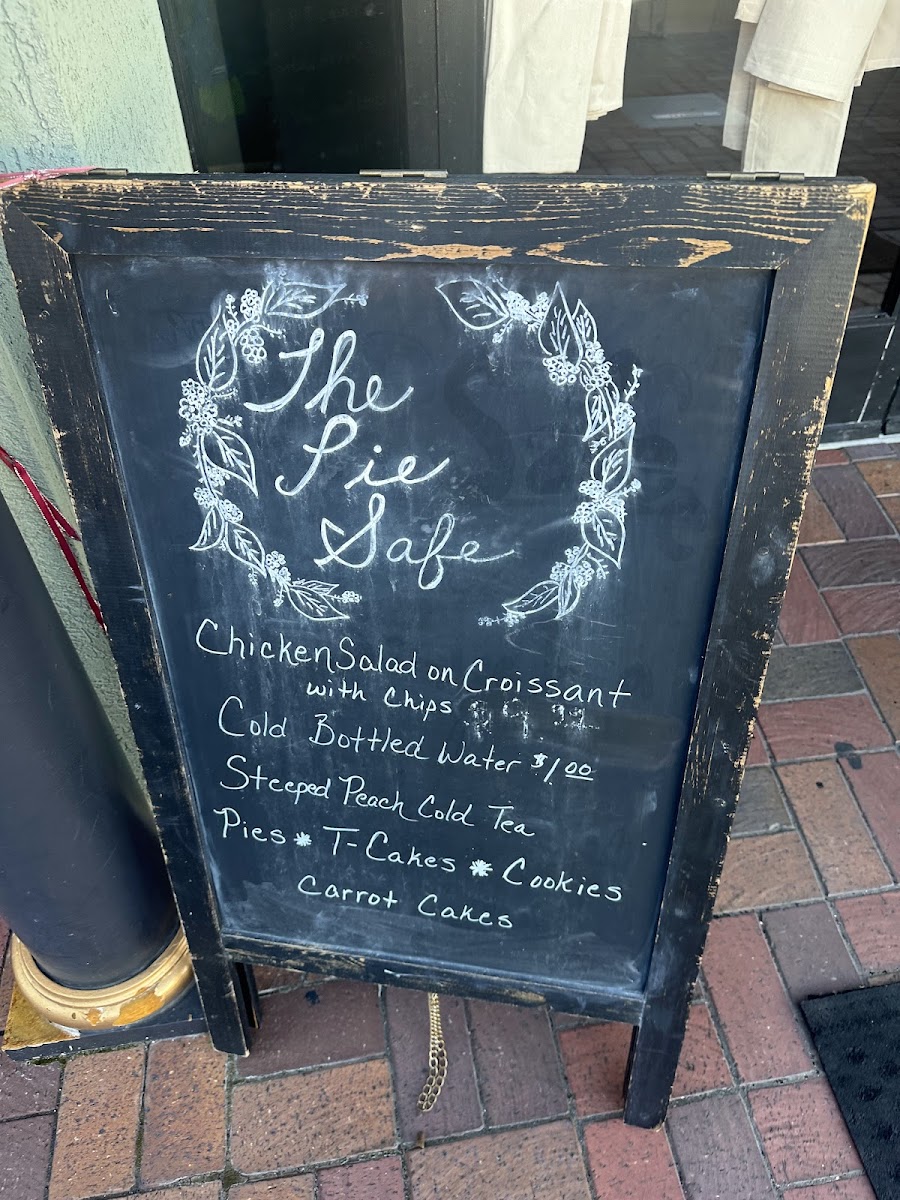 The
Pie
Safe
Chicken Salad on Croissant
with Chips
Cold Bottled Water $1.00
Steeped Peach Cold Tea
Pies * T-Cakes * Cookies
Carrot Cakes